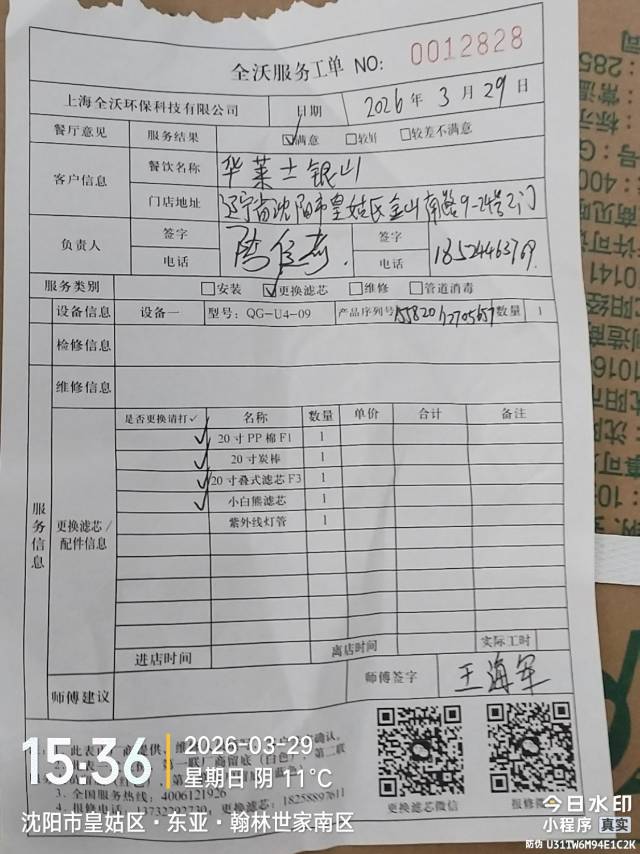 全沃服务工单 NO: 0012828
上海全沃环保科技有限公司 日期 2026年 3月 29日
餐厅意见 服务结果 ☑满意 □较好 □较差不满意
客户信息 餐饮名称 华莱士银山
门店地址 辽宁省沈阳市皇姑区金山南路9-24号2门
负责人 签字 签字
电话 电话 18524463769
服务类别 □安装 ☑更换滤芯 □维修 □管道消毒
设备信息 设备一 型号: QG-U4-09 产品序列号 数量 1
检修信息
维修信息
是否更换请打✓ 名称 数量 单价 合计 备注
✓ 20寸PP棉F1 1
✓ 20寸炭棒 1
✓ 20寸叠式滤芯F3 1
✓ 小白熊滤芯 1
紫外线灯管 1
服务信息
更换滤芯/
配件信息
进店时间 离店时间 实际工时
师傅建议 师傅签字 王海军
3. 全国服务热线: 4006121926
更换滤芯微信 报修微
15:36
2026-03-29
星期日 阴 11°C
沈阳市皇姑区·东亚·翰林世家南区
今日水印
小程序 真实
防伪 U31TW6M94E1C2K